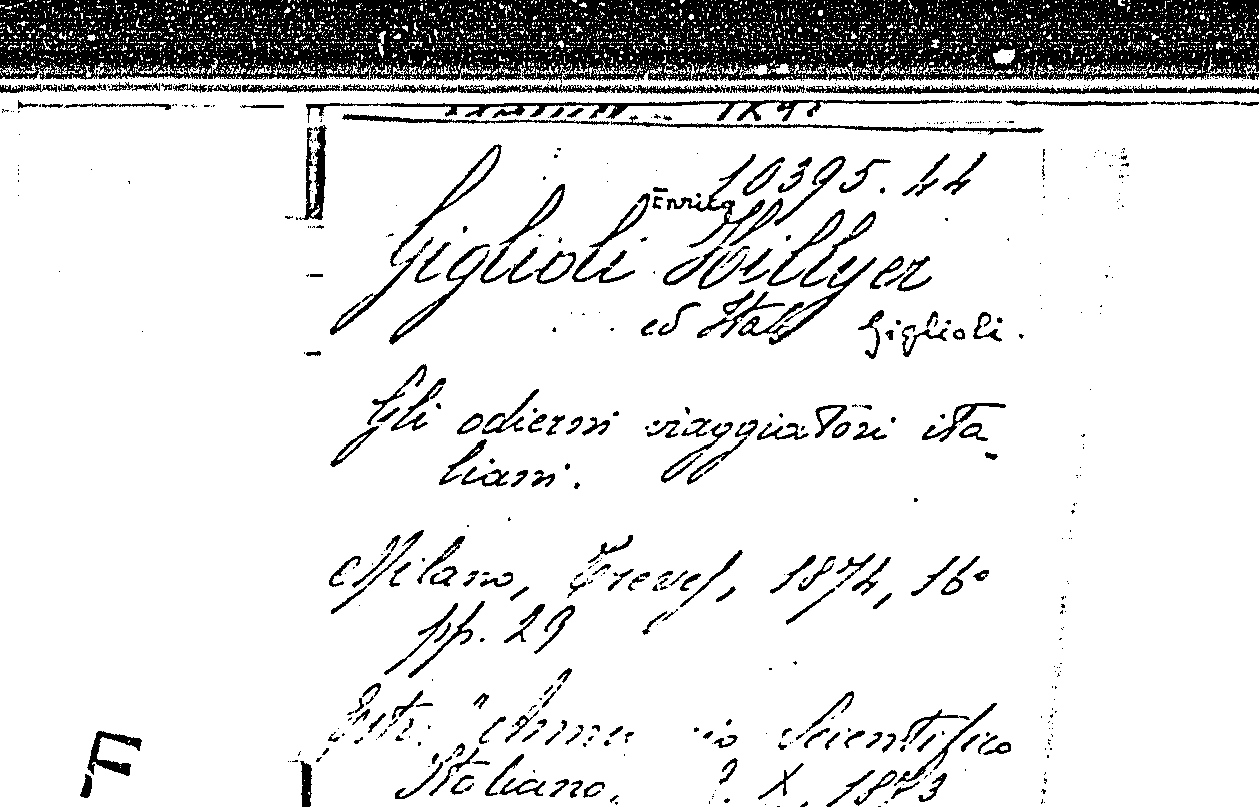 10395.44
Enrico
Giglioli Hillyer
ed Italo Giglioli.
Gli odierni viaggiatori ita-
liani.
Milano, Treves, 1874, 16°
pp. 29
Estr. " Scientifico
Italiano, X, 1873
F